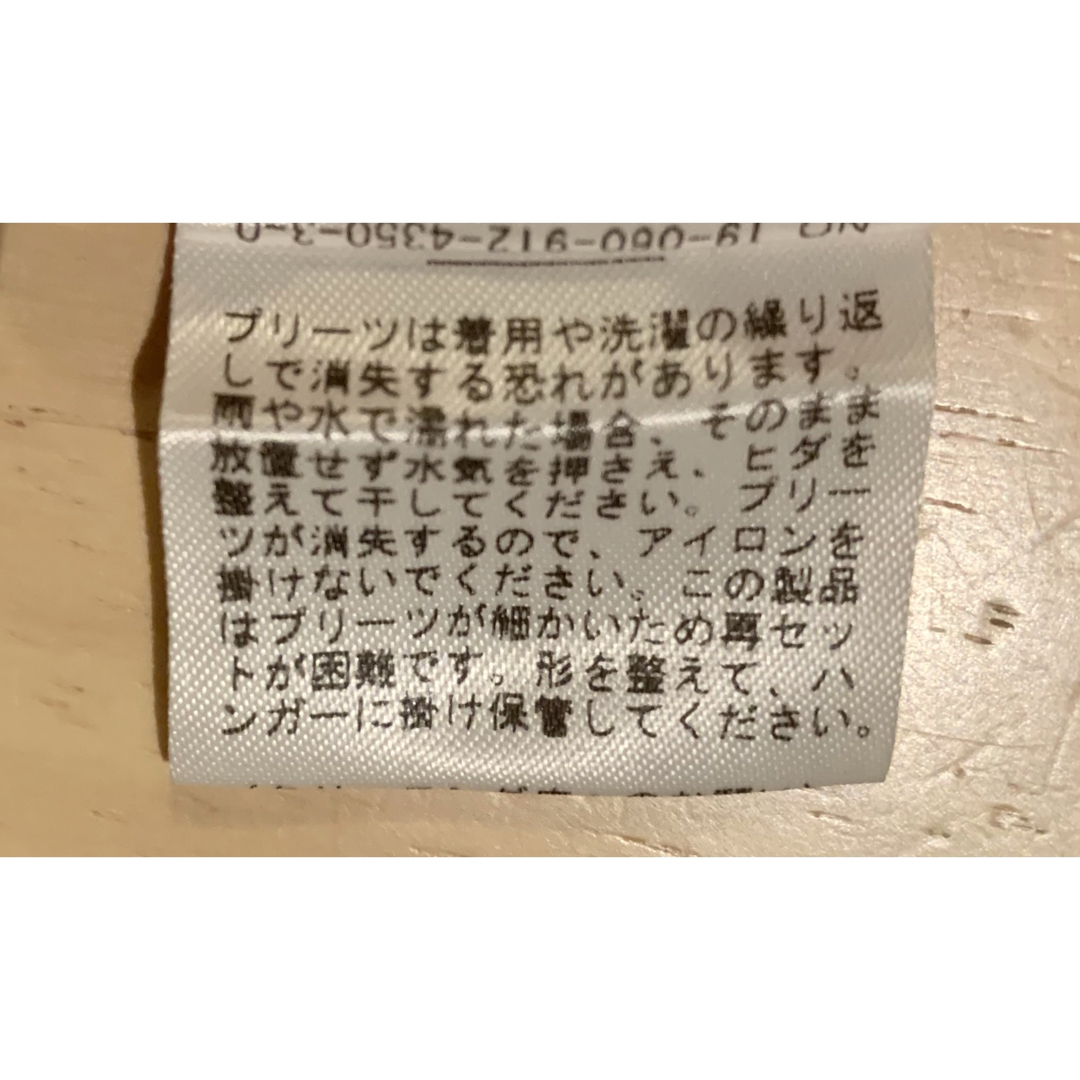 NO 19-060-912-4350-3-0
プリーツは着用や洗濯の繰り返
しで消失する恐れがあります。
雨や水で濡れた場合、そのまま
放置せず水気を押さえ、ヒダを
整えて干してください。プリー
ツが消失するので、アイロンを
掛けないでください。この製品
はプリーツが細かいため再セッ
トが困難です。形を整えて、ハ
ンガーに掛け保管してください。